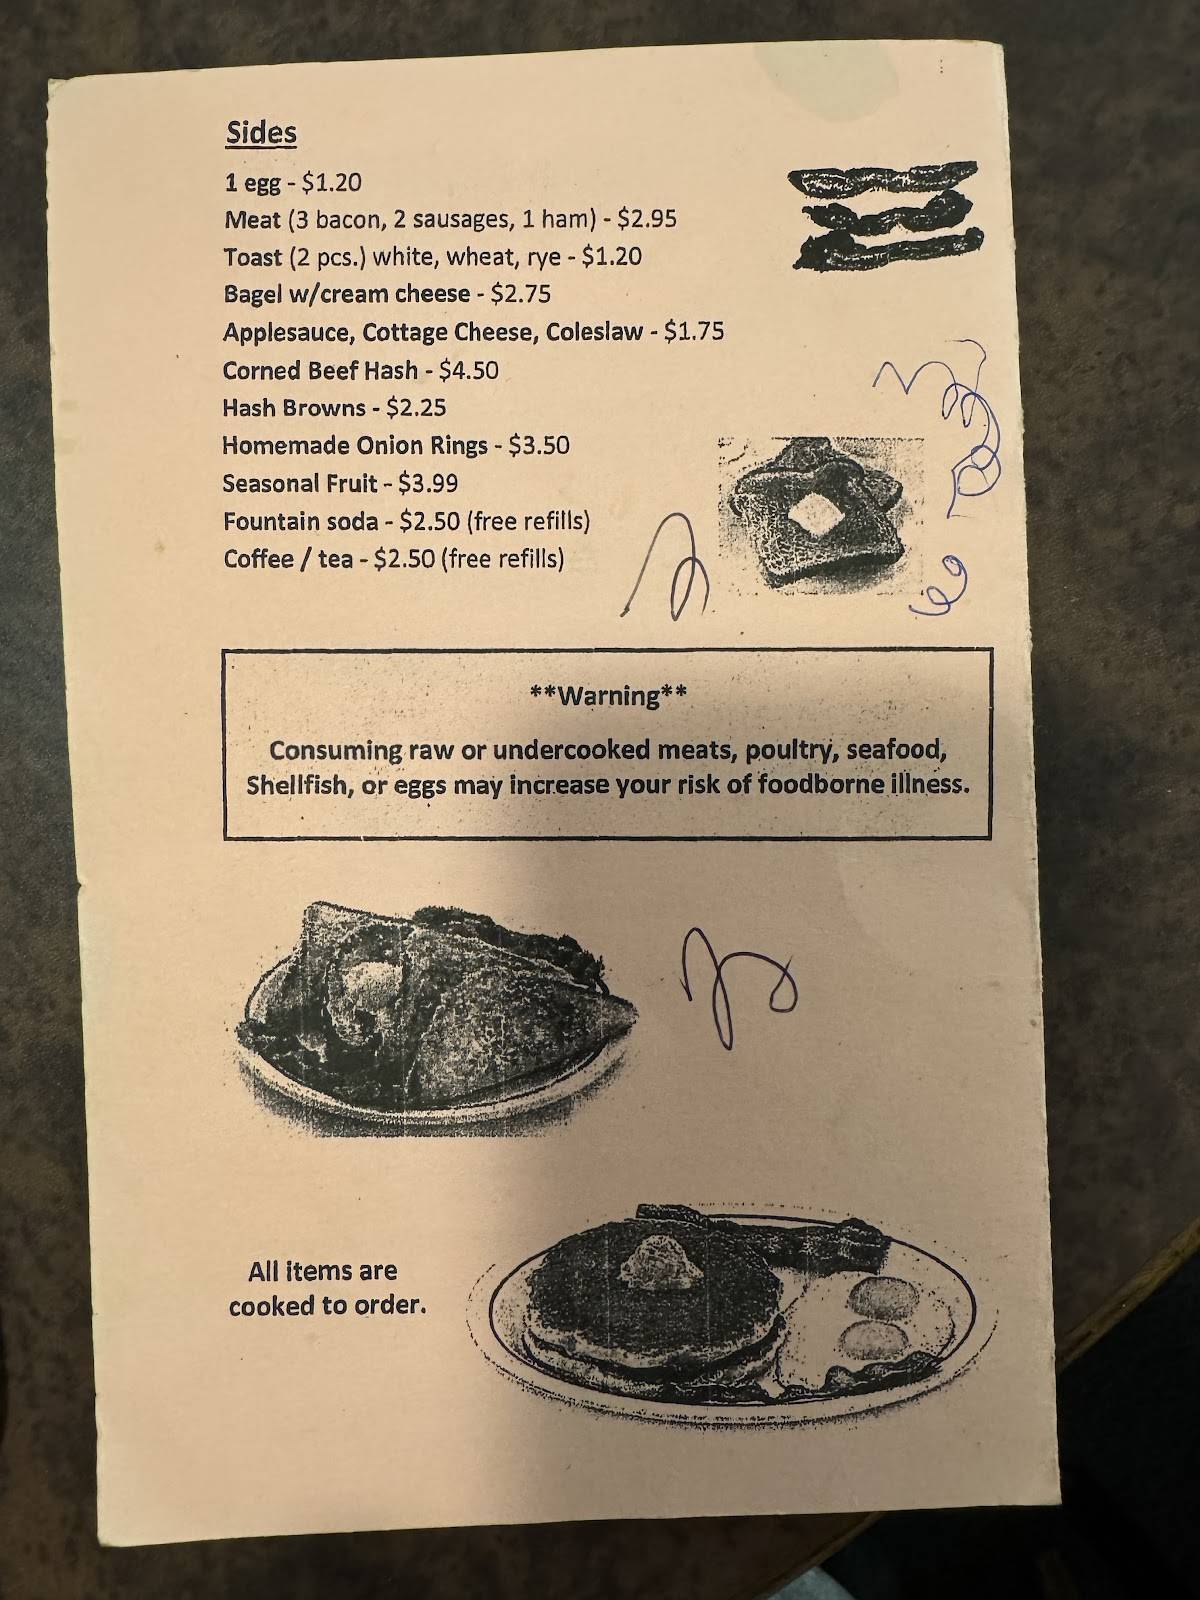 Sides
1 egg - $1.20
Meat (3 bacon, 2 sausages, 1 ham) - $2.95
Toast (2 pcs.) white, wheat, rye - $1.20
Bagel w/cream cheese - $2.75
Applesauce, Cottage Cheese, Coleslaw - $1.75
Corned Beef Hash - $4.50
Hash Browns - $2.25
Homemade Onion Rings - $3.50
Seasonal Fruit - $3.99
Fountain soda - $2.50 (free refills)
Coffee / tea - $2.50 (free refills)
**Warning**
Consuming raw or undercooked meats, poultry, seafood,
Shellfish, or eggs may increase your risk of foodborne illness.
All items are
cooked to order.